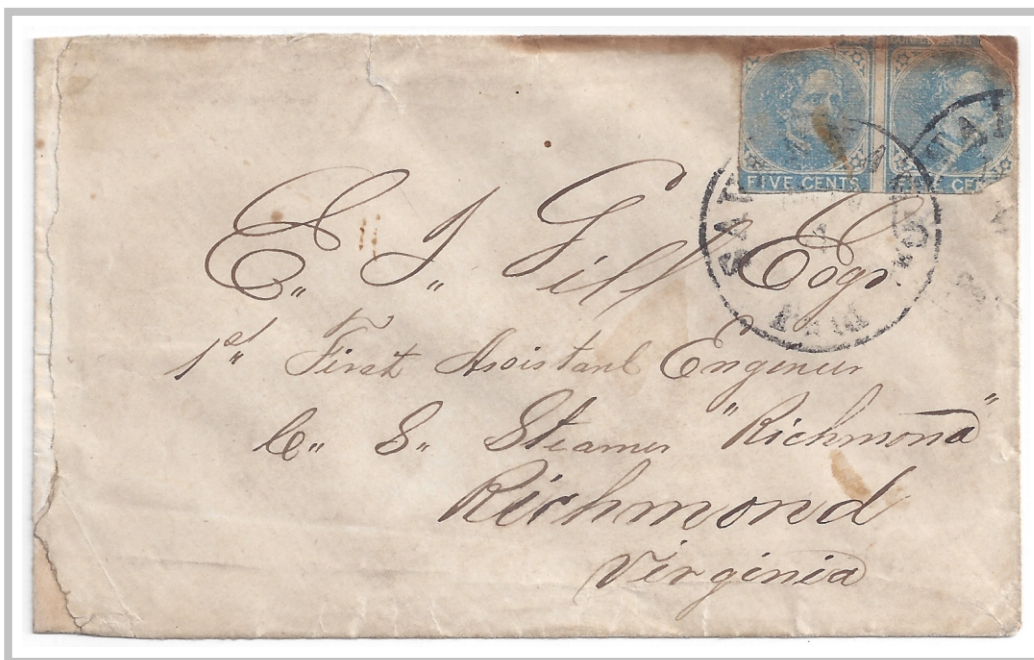 FIVE CENTS FIVE CENT
SAV
E,, J,, Gill Esqr
1st,, First Assistant Engineer
C,, S,, Steamer "Richmond"
Richmond
Virginia